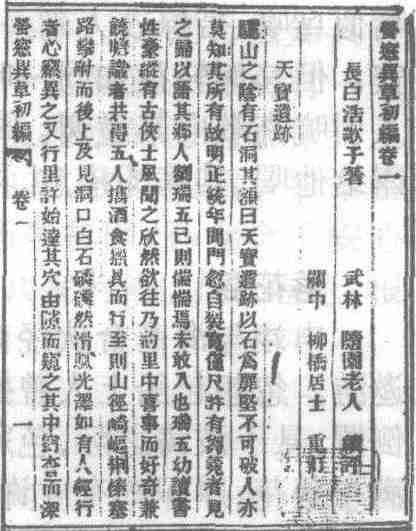 螢窓異草初編卷一
長白浩歌子著
武林 隨園老人 續評
關中 柳橋居士 重訂
天寶遺跡
驪山之陰有石洞其額曰天寶遺跡以石為扉堅不可破人亦
莫知其所有故明正統年間門忽自裂寬僅尺許有芻蕘者見
之歸以語其鄉人劉瑞五已則惴惴焉未敢入也瑞五幼讀書
性豪縱有古俠士風聞之欣然欲往乃約里中喜事而好奇兼
饒膽識者共得五人攜酒食燃具而行至則山徑崎嶇榛塞
路攀附而後上及見洞口白石磷磷然滑膩光澤如有人經行
者心竊異之又行里許始達其穴由隙而窺之其中窅杳而深
螢窓異草初編 卷一 一